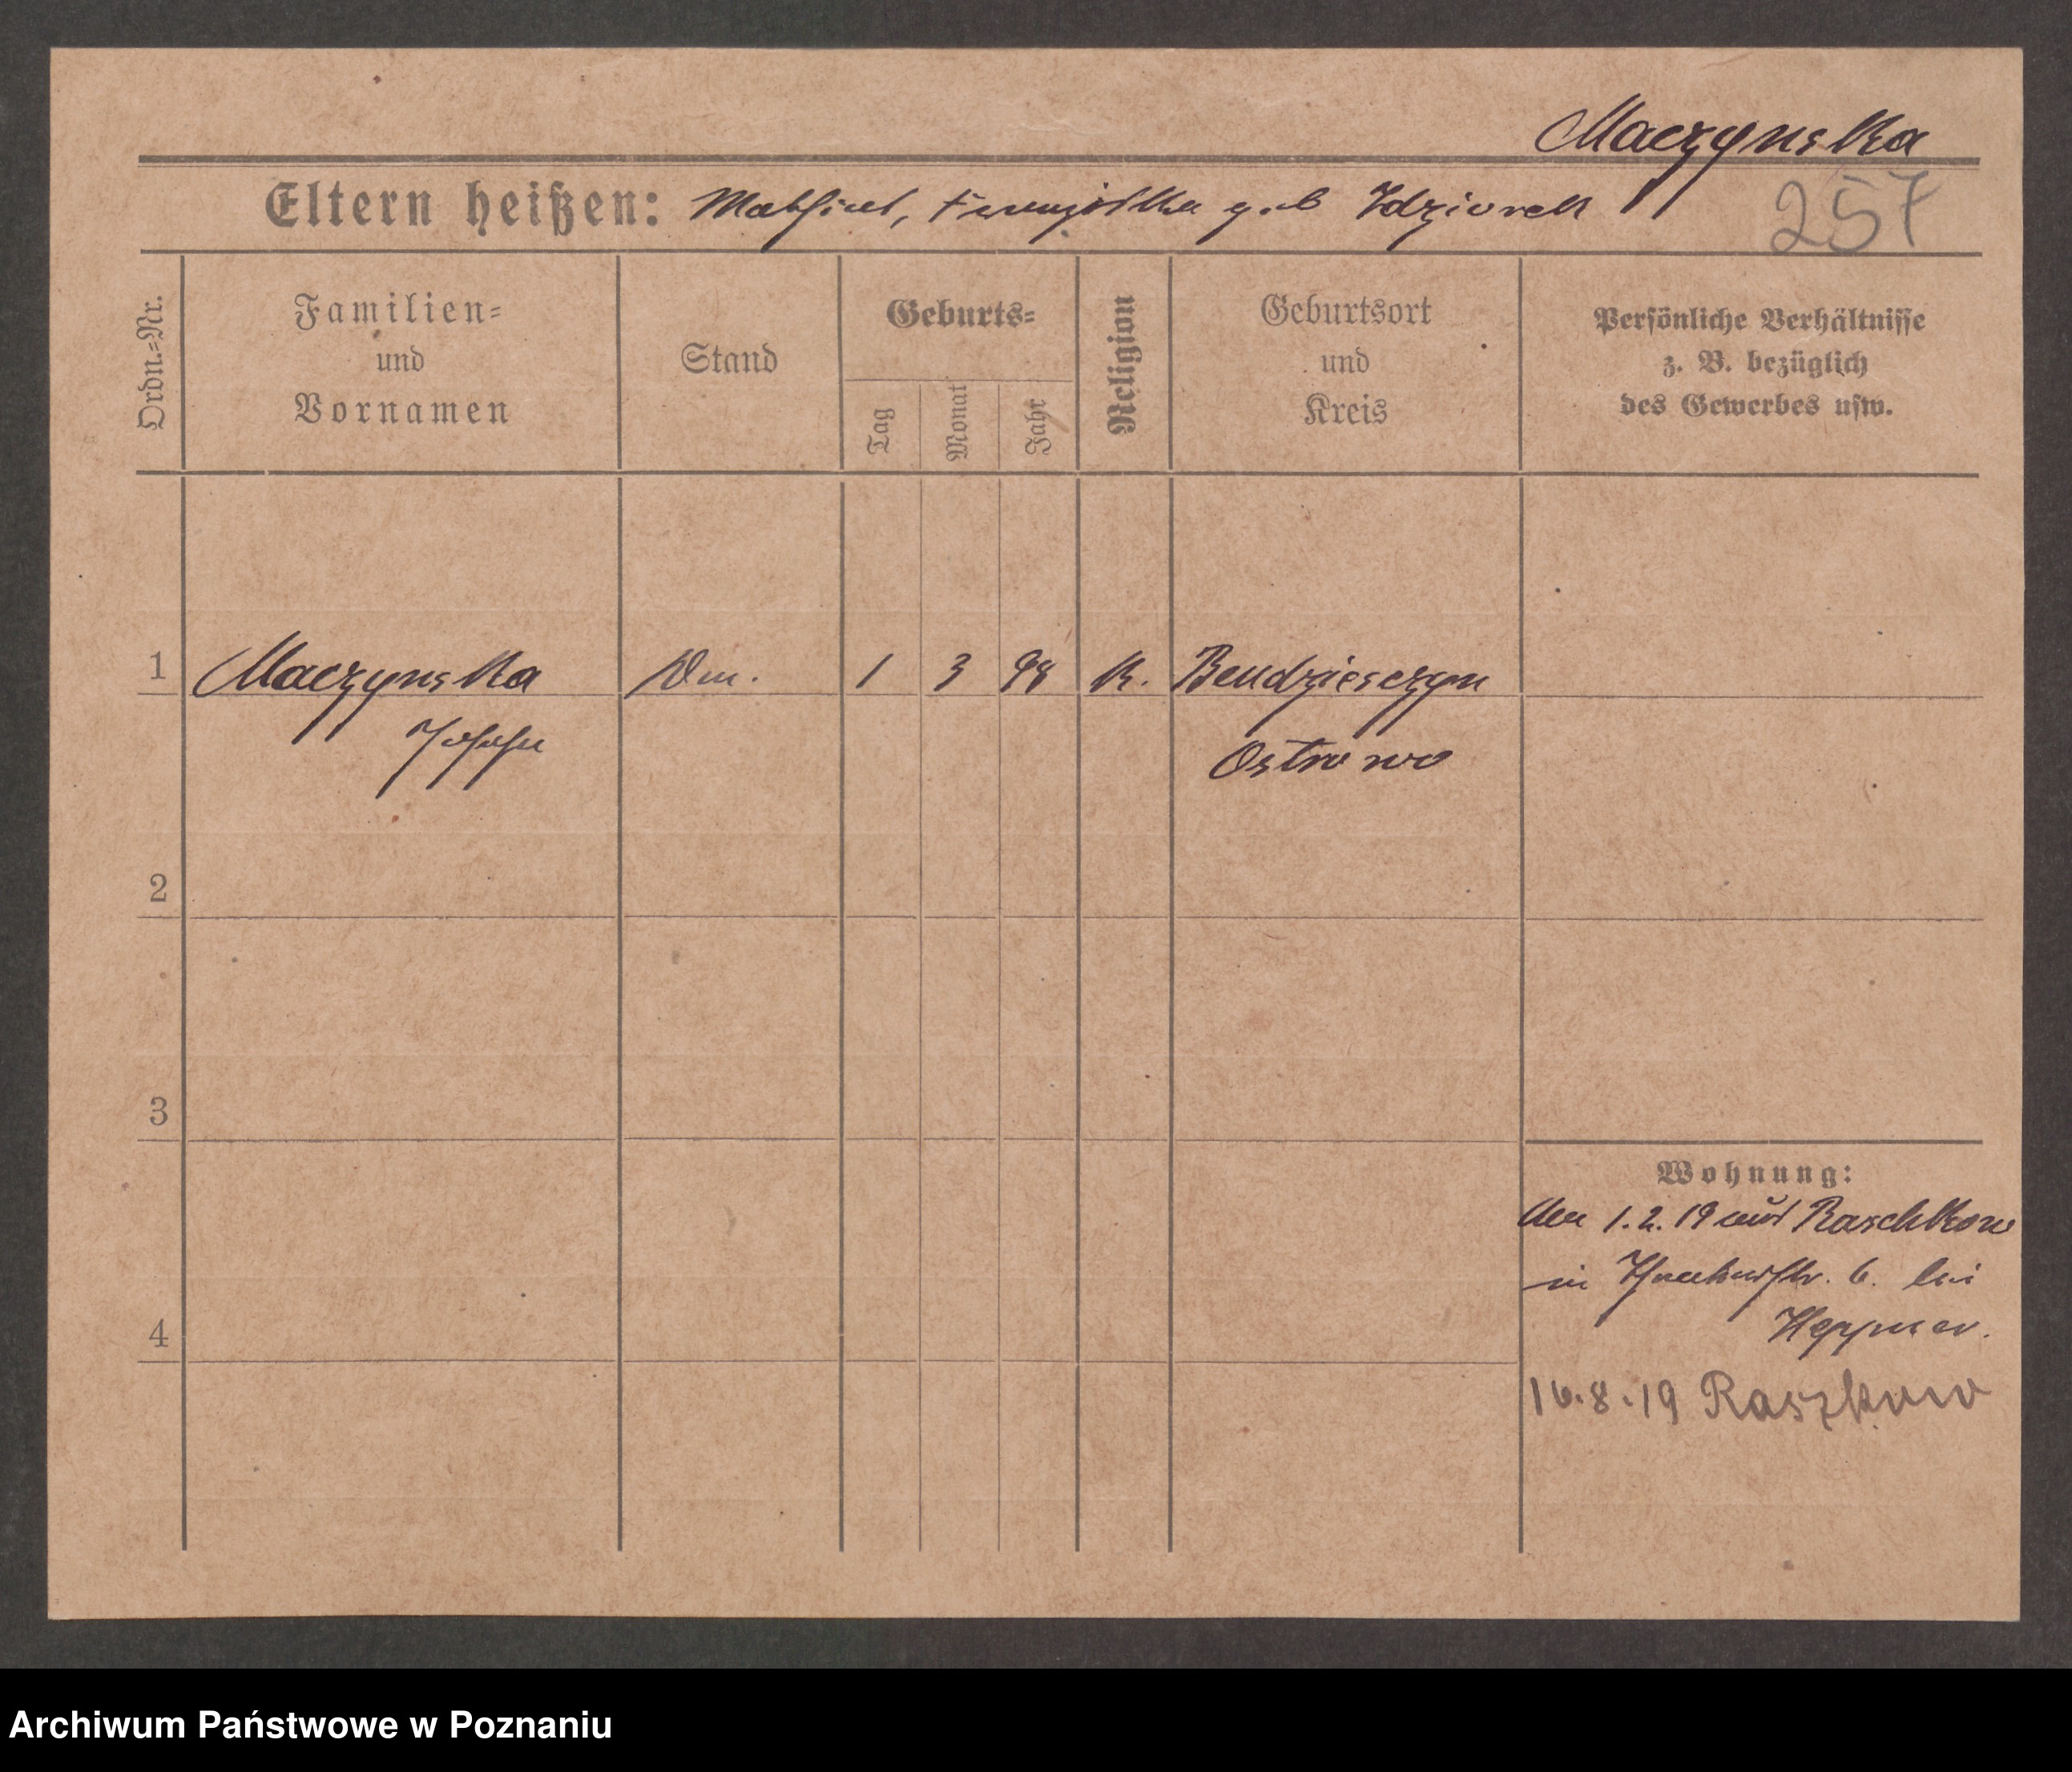 Maczynska
Eltern heißen: Mathias, Franziska geb Idziorek
257
Ordn.=Nr.
Familien= und Vornamen
Stand
Geburts=
Tag
Monat
Jahr
Religion
Geburtsort und Kreis
Persönliche Verhältnisse z. B. bezüglich des Gewerbes usw.
1 Maczynska 1 3 98 K. Bendzieszyn
Josefa Ostrowo
2
3
Wohnung:
1.2.19 aus Raschkow
in 6. bei
Heppner.
4
16.8.19 Raszkow
Archiwum Państwowe w Poznaniu